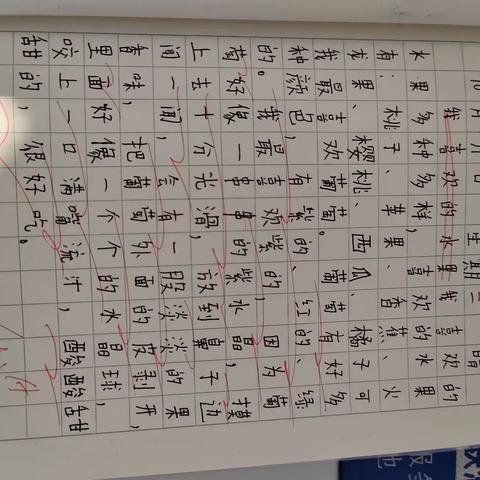 10月11日 星期二 晴
我喜欢的水果
水果多种多样，我喜欢的水果
有：桃子、苹果、香蕉、火
龙果、樱桃、西瓜、橘子可
我最喜欢葡萄。葡萄有好多
种颜色，有紫的、红的、绿
的。我最喜欢紫的，因为葡
萄好像一串串的紫水晶，摸
上去十分光滑，放到鼻子边
间一间，会有一股淡淡的果
香味，把葡萄外面的皮剥开，
里面好像一个个的水晶球，
咬上一口满嘴流汁，酸酸甜
甜的，很好吃。